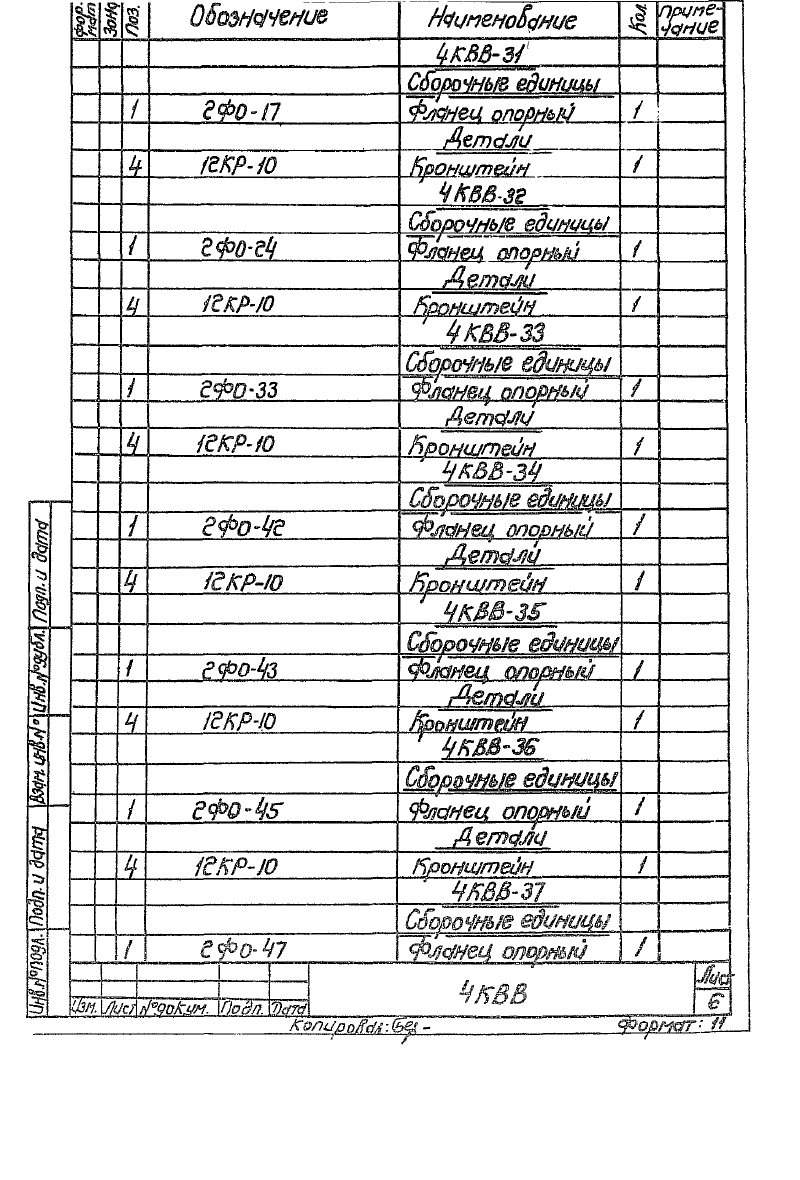 Фор-мат Зона Поз. Обозначение Наименование Кол. Приме-чание
4КВВ-31
Сборочные единицы
1 2ФО-17 Фланец опорный 1
Детали
4 12КР-10 Кронштейн 1
4КВВ-32
Сборочные единицы
1 2ФО-24 Фланец опорный 1
Детали
4 12КР-10 Кронштейн 1
4КВВ-33
Сборочные единицы
1 2ФО-33 Фланец опорный 1
Детали
4 12КР-10 Кронштейн 1
4КВВ-34
Сборочные единицы
1 2ФО-42 Фланец опорный 1
Детали
4 12КР-10 Кронштейн 1
4КВВ-35
Сборочные единицы
1 2ФО-43 Фланец опорный 1
Детали
4 12КР-10 Кронштейн 1
4КВВ-36
Сборочные единицы
1 2ФО-45 Фланец опорный 1
Детали
4 12КР-10 Кронштейн 1
4КВВ-37
Сборочные единицы
1 2ФО-47 Фланец опорный 1
Подп. и дата
Инв.№дубл.
Взам.инв.№
Подп. и дата
Инв.№подл.
Изм. Лист №докум. Подп. Дата
4КВВ
Лист
6
Копировал: Формат: 11